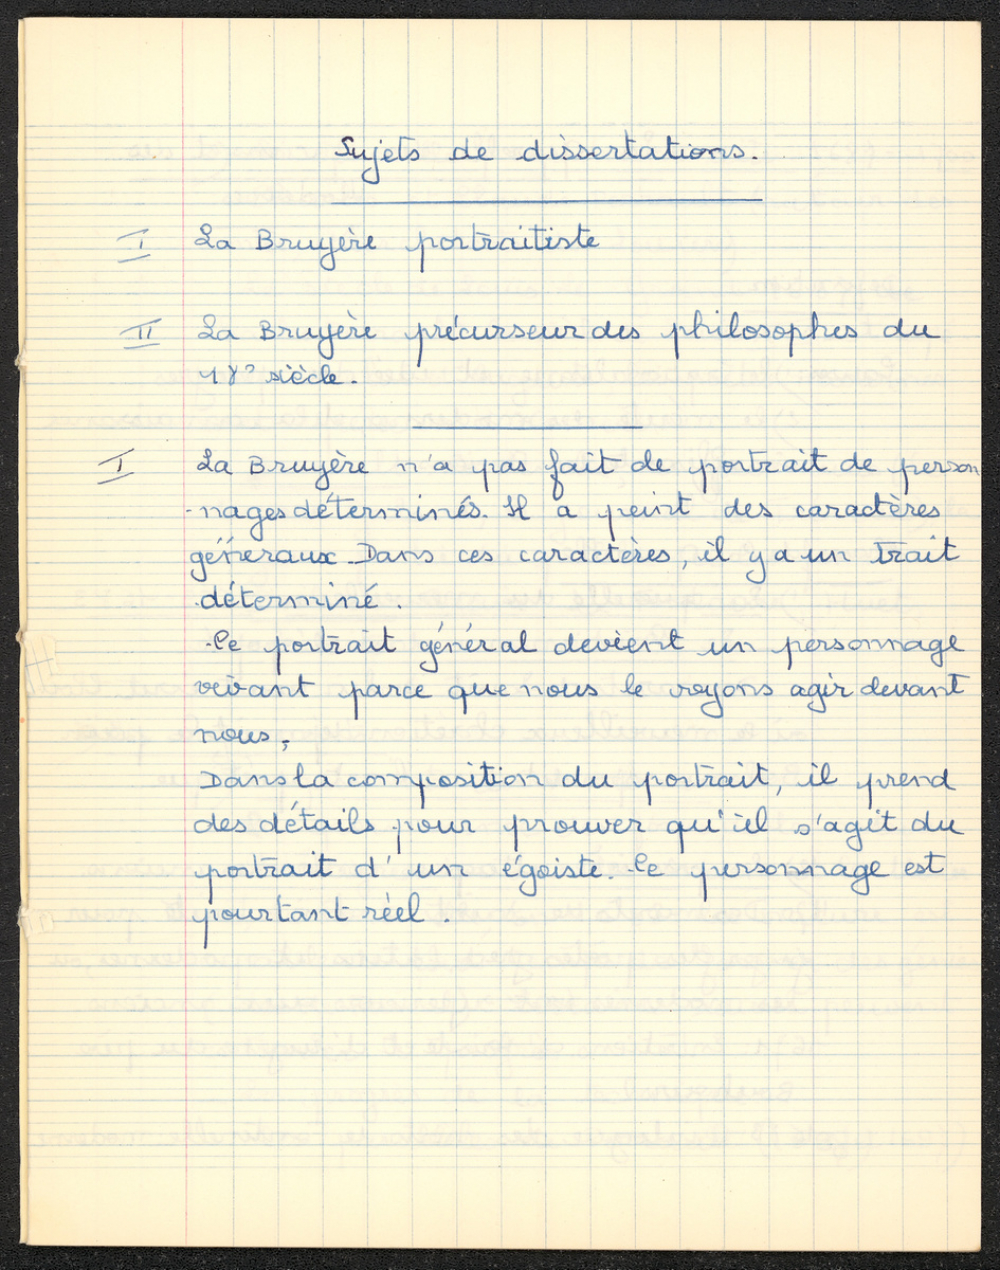 Sujets de dissertations.
I La Bruyère portraitiste
II La Bruyère précurseur des philosophes du
18e siècle.
I La Bruyère n'a pas fait de portrait de person
-nages déterminés. Il a peint des caractères
généraux. Dans ces caractères, il y a un trait
déterminé.
Ce portrait général devient un personnage
vivant parce que nous le voyons agir devant
nous.
Dans la composition du portrait, il prend
des détails pour prouver qu'il s'agit du
portrait d'un égoiste. Ce personnage est
pourtant réel.